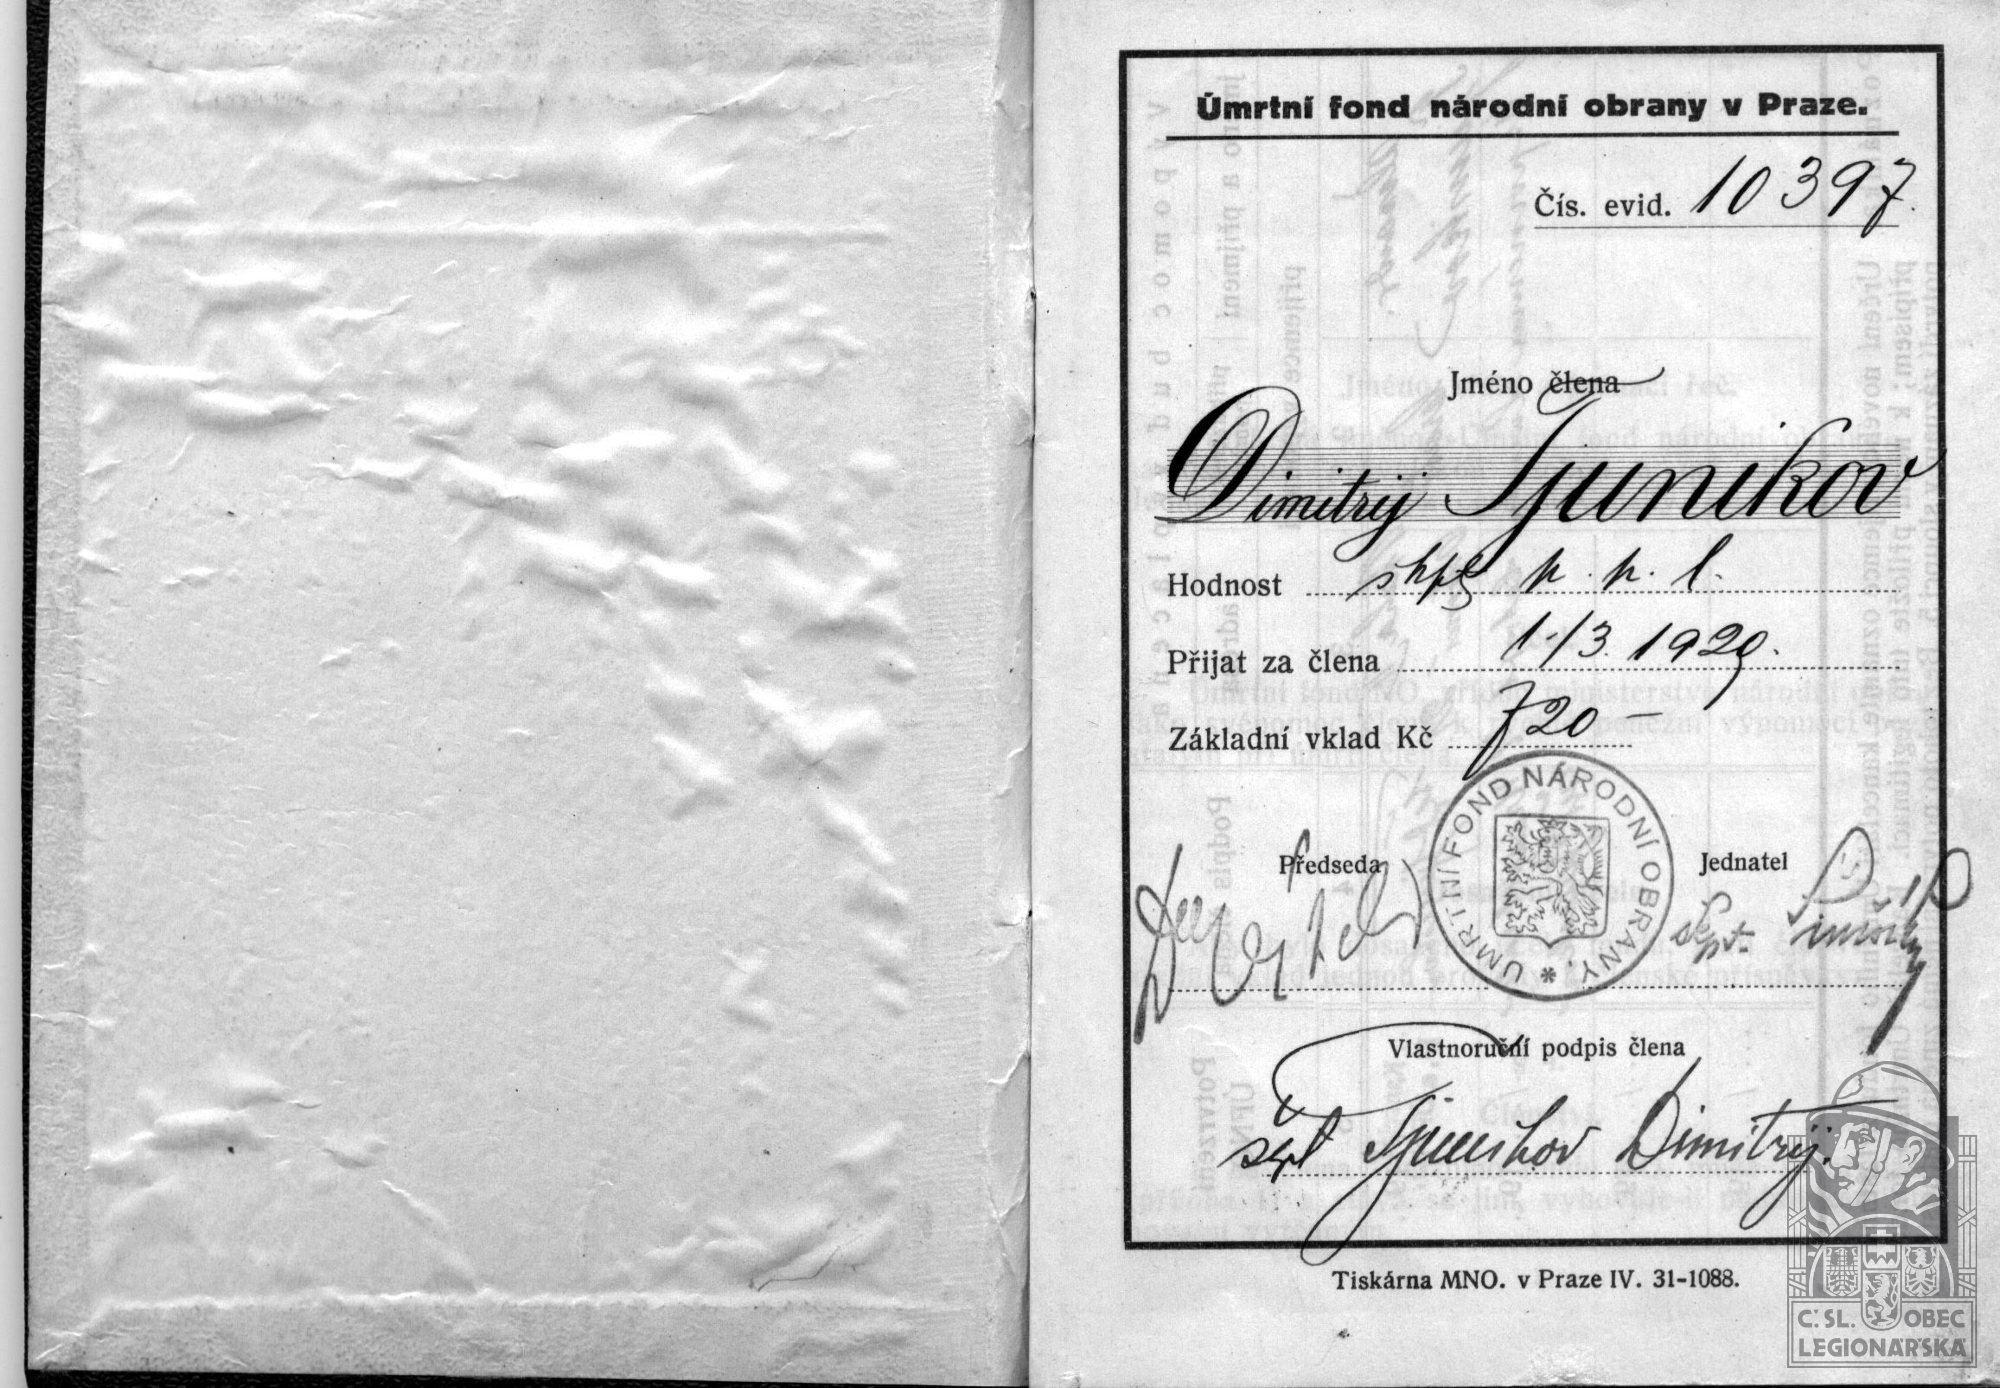 Úmrtní fond národní obrany v Praze.
Čís. evid. 10397.
Jméno člena
Dimitrij Tjunikov
Hodnost škpt p. p. l.
Přijat za člena 1./3 1929.
Základní vklad Kč 720 —
Předseda
Jednatel
škpt.
ÚMRTNÍ FOND NÁRODNÍ OBRANY. *
Vlastnoruční podpis člena
Tjunikov Dimitrij.
Tiskárna MNO. v Praze IV. 31-1088.
Č.SL. OBEC
LEGIONÁŘSKÁ